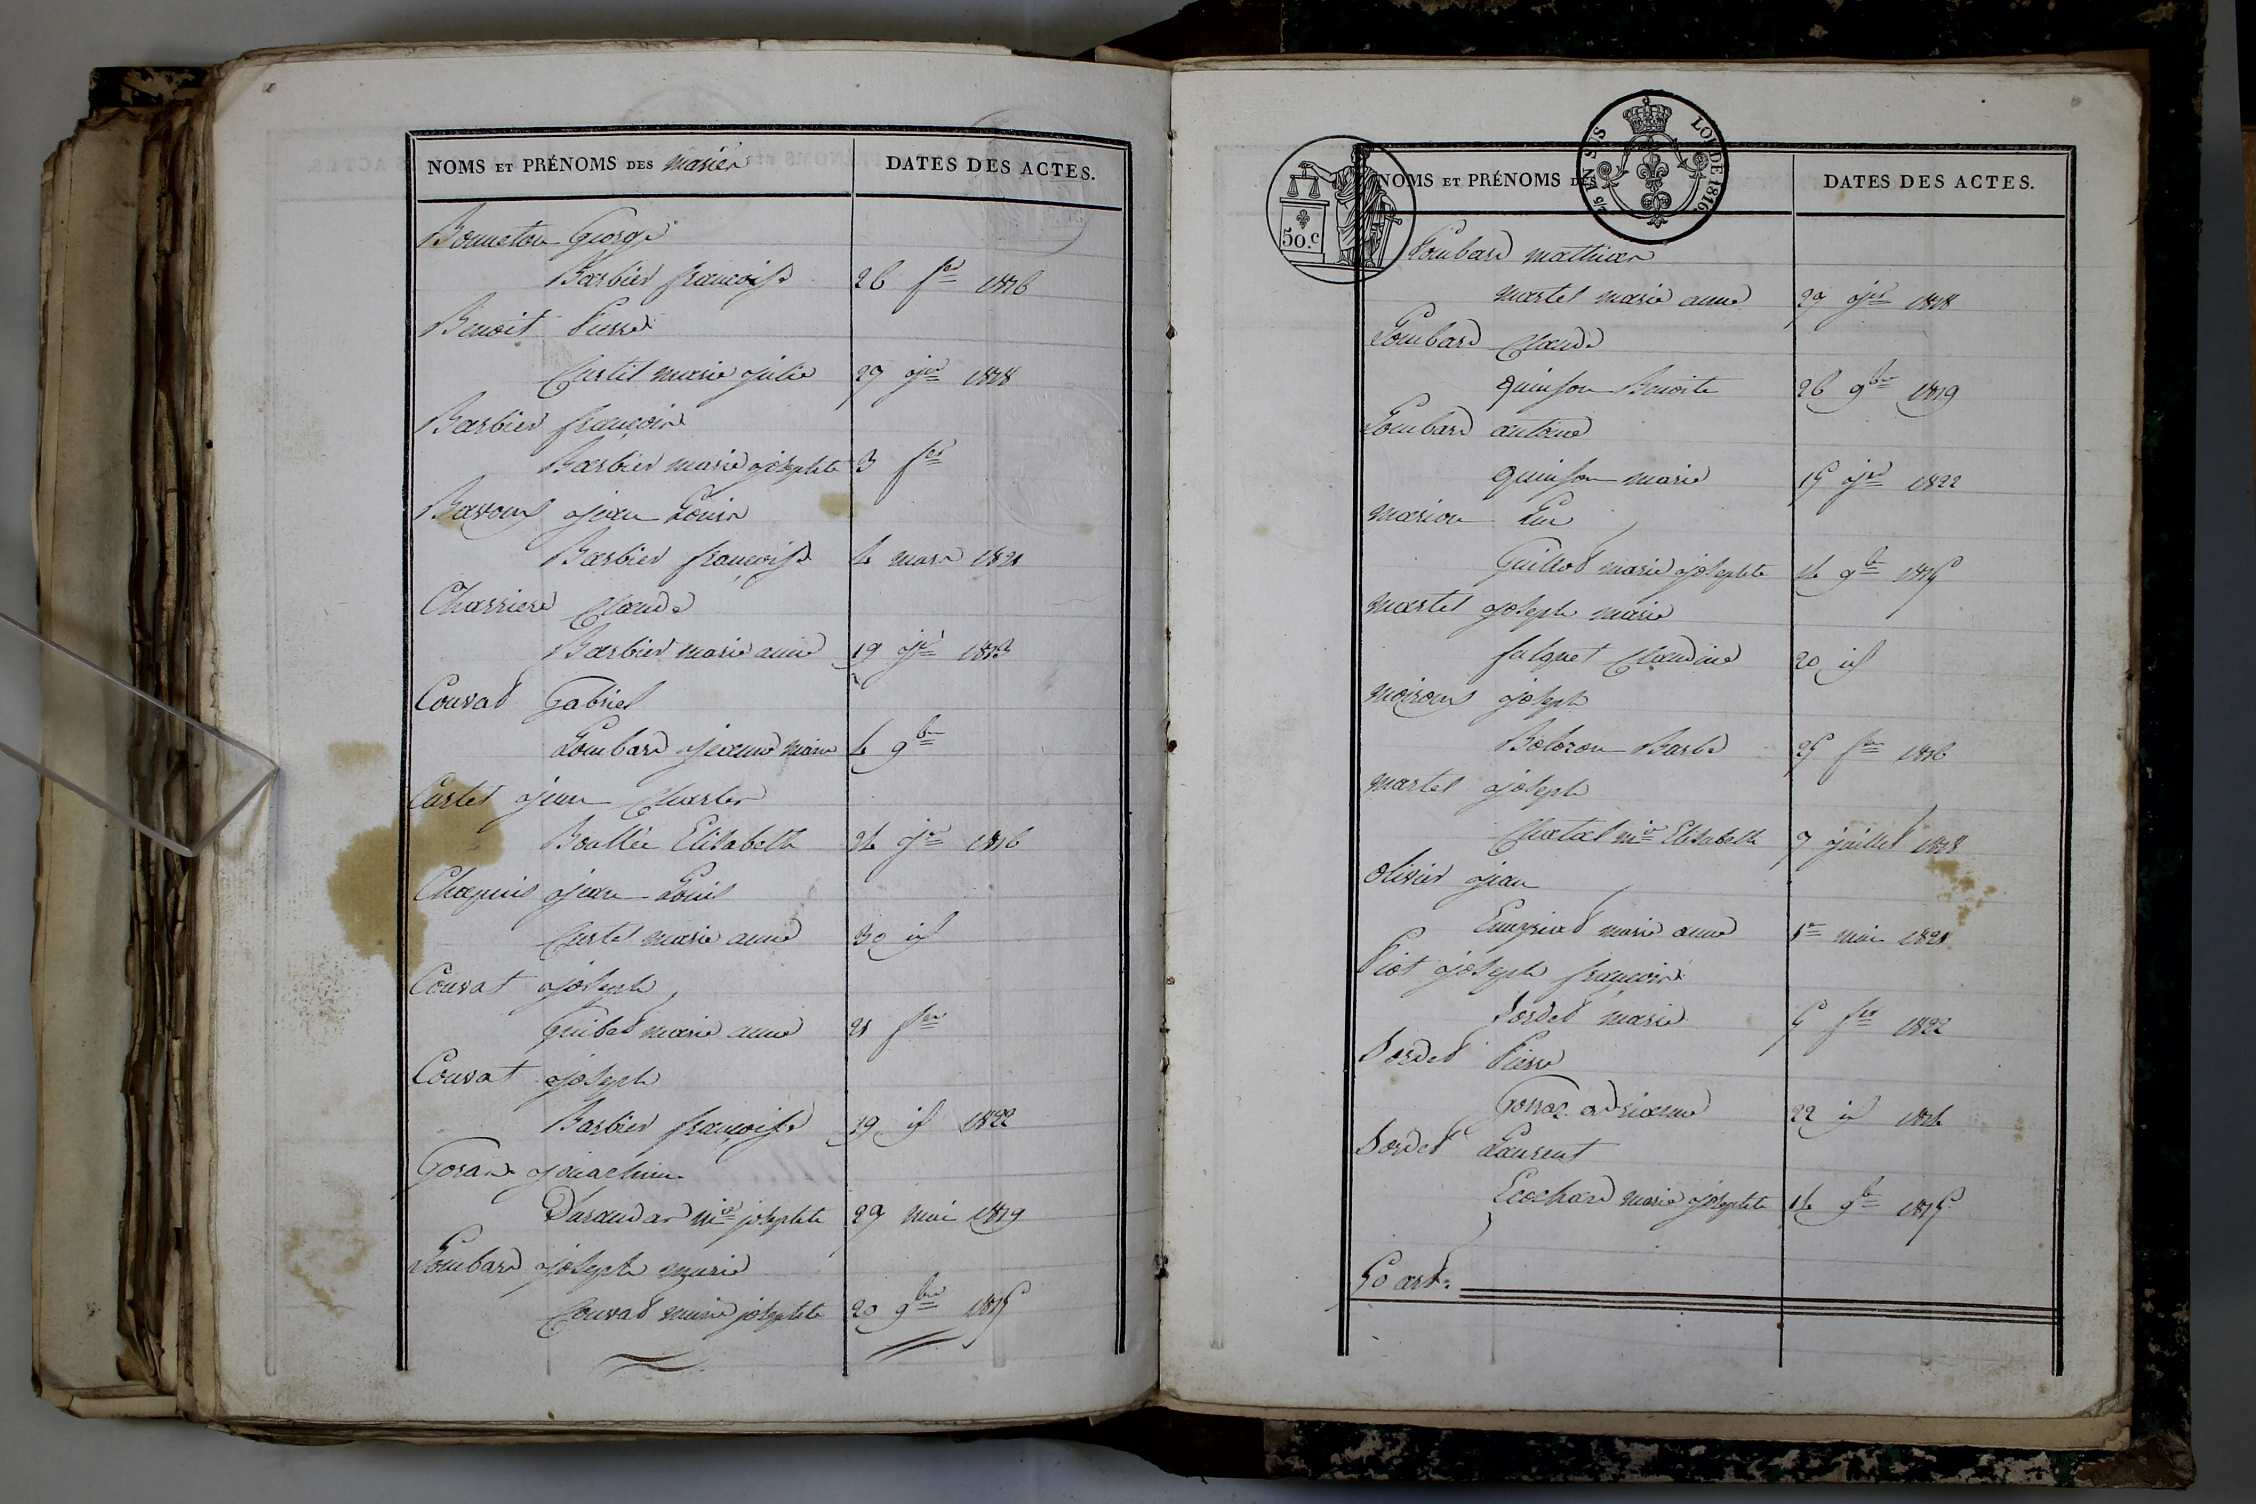 NOMS ET PRÉNOMS DES mariés DATES DES ACTES.
Bonneton George
Barbier françoise 26 fer 1816
Benoit Pierre
Curtil marie julie 27 jer 1818
Barbier françois
Barbier marie josephte 3 fer
Bavoux jean Louis
Barbier françoise 4 mars 1821
Charriere Claude
Barbier marie anne 19 jer
Couvat Gabriel
Lombard jeanne marie 4 9bre
Curtet jean Charles
Boullée Elisabeth 24 jer 1816
Chapuis jean Louis
Curtet marie anne 30 id
Couvat joseph
Guibet marie anne 21 fer
Couvat joseph
Barbier françoise 19 id 1822
joachim
mie josephte 27 mai 1819
Lombard joseph marie
Couvat marie josephte 20 9bre 1815
50.c
1/5 EN SUS
LOI DE 1816
NOMS ET PRÉNOMS DES DATES DES ACTES.
Lombard mathieu
martel marie anne 27 jer 1818
Lombard Claude
quinson Benoite 26 9bre 1819
Lombard antoine
quinson marie 15 jer 1822
marion Luc
Guillot marie josephte 14 9bre 1815
martel joseph marie
falquet Claudine 20 id
moiroux joseph
Bolozon Barbe 25 fer 1816
martel joseph
Chatel mie Elisabeth 7 juillet 1818
olivier jean
marie anne 1er mai 1821
Piot joseph françois
Sordet marie 5 fer 1822
Sordet Pierre
Goyoz adrianne 22 id 1816
Sordet Laurent
Ecochard marie josephte 14 9bre 1815
50 art.